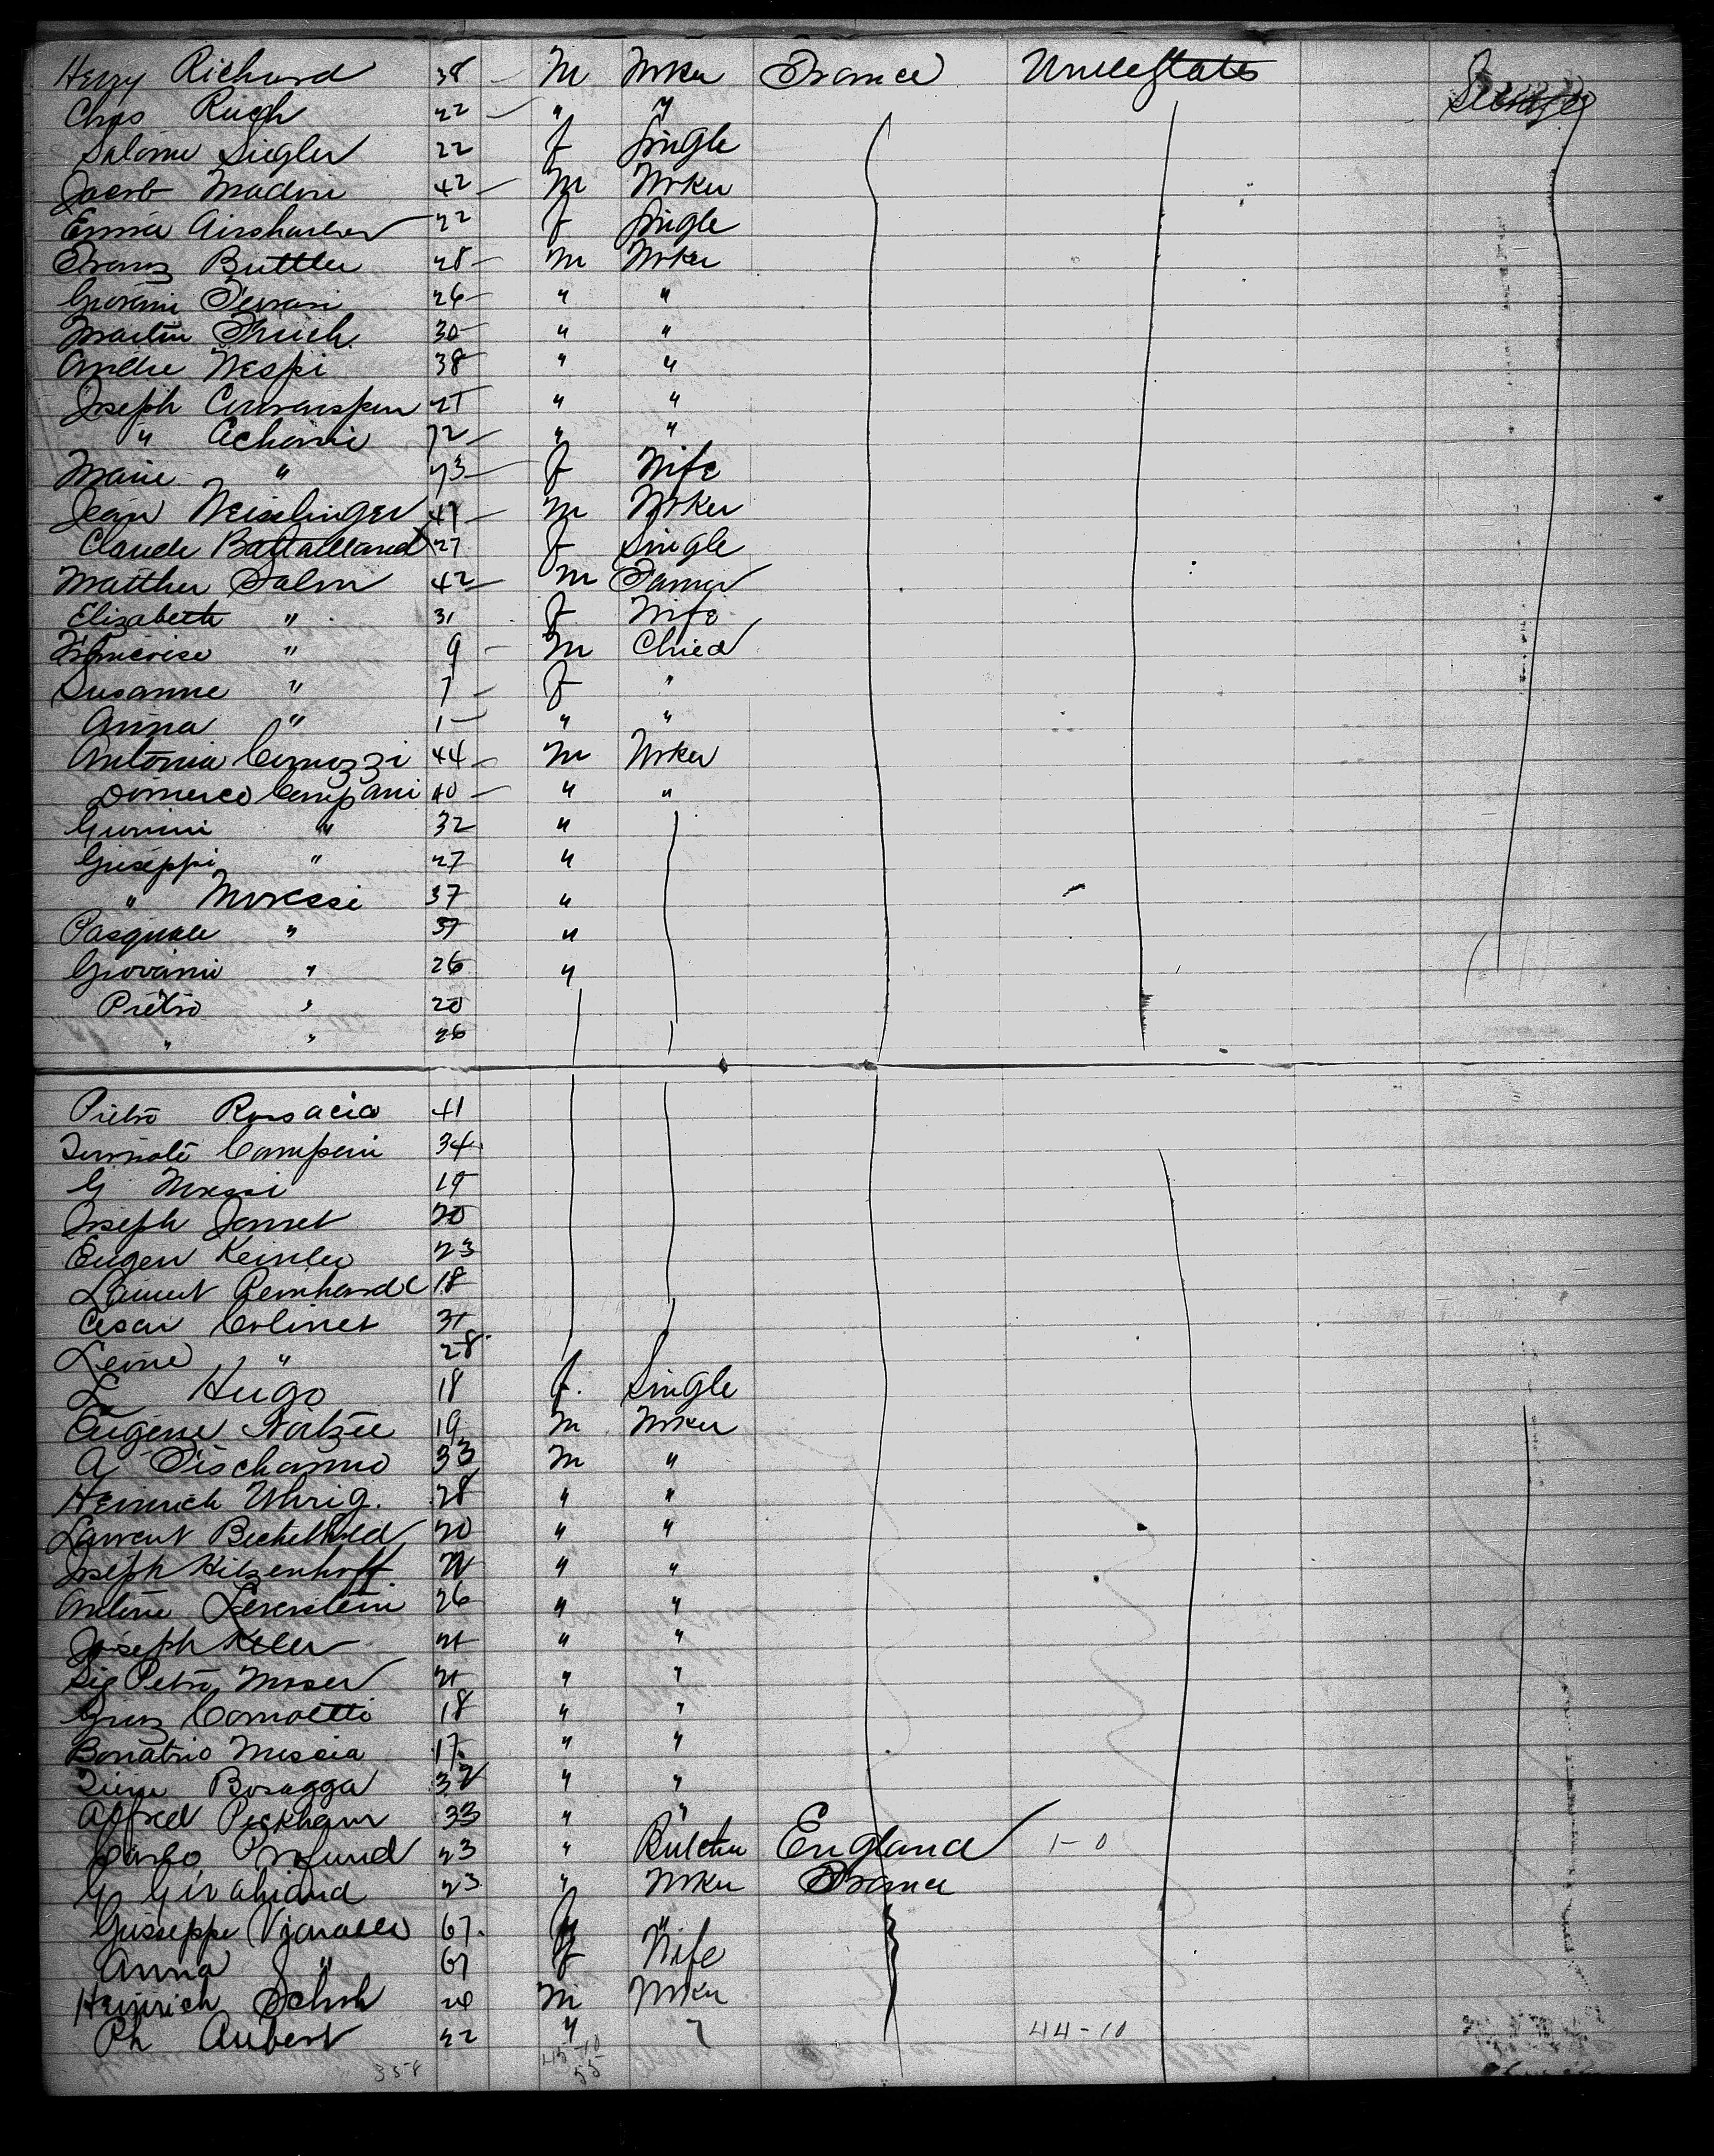 Henry Richard 38 — M Wrker France United States
Chas Ruch 22 — " "
Salome Siegler 22 f Single
Jacob Madori 42 — M Wrker
Emma 22 f Single
Franz Buttler 28 — M Wrker
Giovani Ferrari 26 — " "
Martin Fruch 30 — " "
Andre Nespi 38 " "
Joseph " "
" Achomi 72 — " "
Marie " 73 — f Wife
Jean Weisslinger 47 — M Wrker
Claude Battailland 27 f Single
Matthew Salm 42 — M Farmer
Elizabeth " 31 f Wife
Francoise " 9 — M Chied
Susanne " 7 — f "
Anna " 1 — " "
Antonia Comozzi 44 — M Wrker
Domenco Campani 40 — " "
Giovini " 32 "
Giuseppi " 27 "
" Moressi 37 "
Pasquale " 37 "
Giovanni " 26 "
Pietro " 20
" " 26
Pietro Rossacia 41
Campani 34
G Morssi 19
Joseph Jannet 20
Eugen Keinler 23
Laurent Bernhardt 18
Cesar Colinet 31
Leonie " 28
L Hugo 18 f. Single
Eugene Nortzee 19 M Wrker
A Fischanno 33 M "
Heinrich Uhrig. 28 " "
Laurent Bechelhold 20 " "
Joseph Hitzenhoff " "
Antone Leverstein 26 " "
Joseph Keller 21 " "
Sig Petro Moser 21 " "
Giuz Comoetti 18 " "
Bonatrio Messia 17 " "
Bosagga 32 " "
Alfred Peckham 33 " "
Carlo Profund 23 " Butcher England 1-0
G Girahiand 23 " Wrker France
Guiseppe Vignalle 67. "
Anna " 67 f Wife
Heinrich Schuh 28 M Wrker
Ph Aubert 22 " " 44-10
358 45-10
55